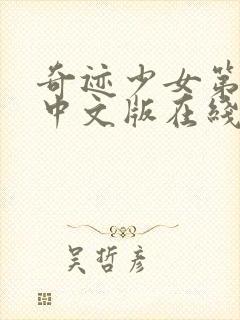 奇迹少女第
中文版在线
吴哲彦